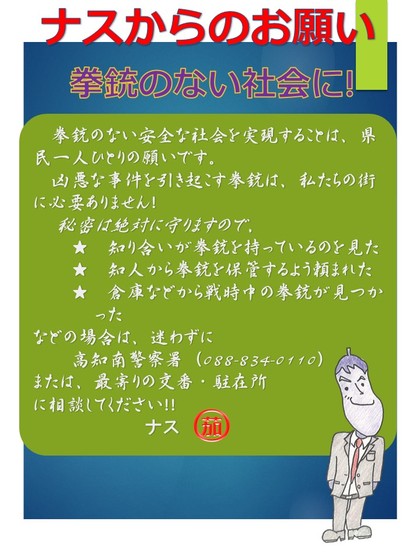 ナスからのお願い
拳銃のない社会に!
拳銃のない安全な社会を実現することは、県
民一人ひとりの願いです。
凶悪な事件を引き起こす拳銃は、私たちの街
に必要ありません!
秘密は絶対に守りますので、
★ 知り合いが拳銃を持っているのを見た
★ 知人から拳銃を保管するよう頼まれた
★ 倉庫などから戦時中の拳銃が見つか
った
などの場合は、迷わずに
高知南警察署 (088-834-0110)
または、最寄りの交番・駐在所
に相談してください!!
ナス ㊞茄